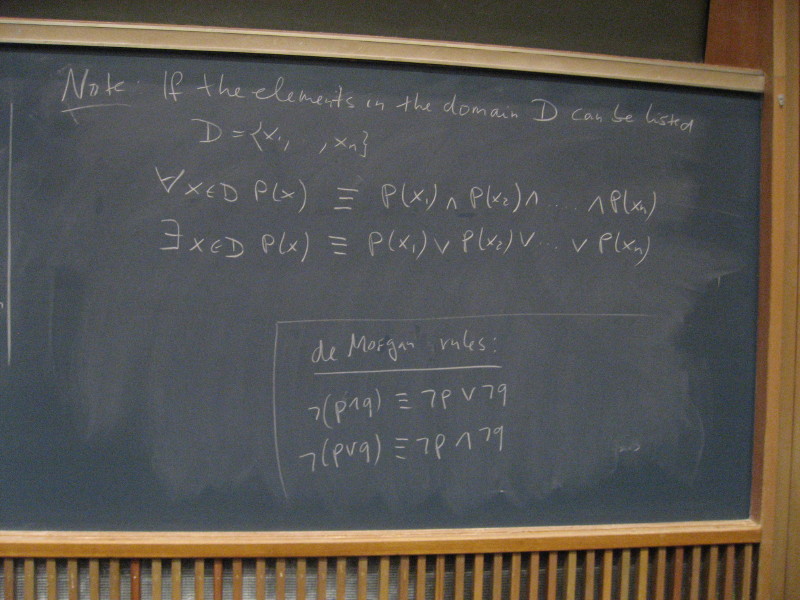 Note: If the elements in the domain D can be listed
D = {x₁, , xₙ}
∀x∈D P(x) ≡ P(x₁) ∧ P(x₂) ∧ ... ∧ P(xₙ)
∃x∈D P(x) ≡ P(x₁) ∨ P(x₂) ∨ ... ∨ P(xₙ)
de Morgan rules:
¬(p∧q) ≡ ¬p ∨ ¬q
¬(p∨q) ≡ ¬p ∧ ¬q